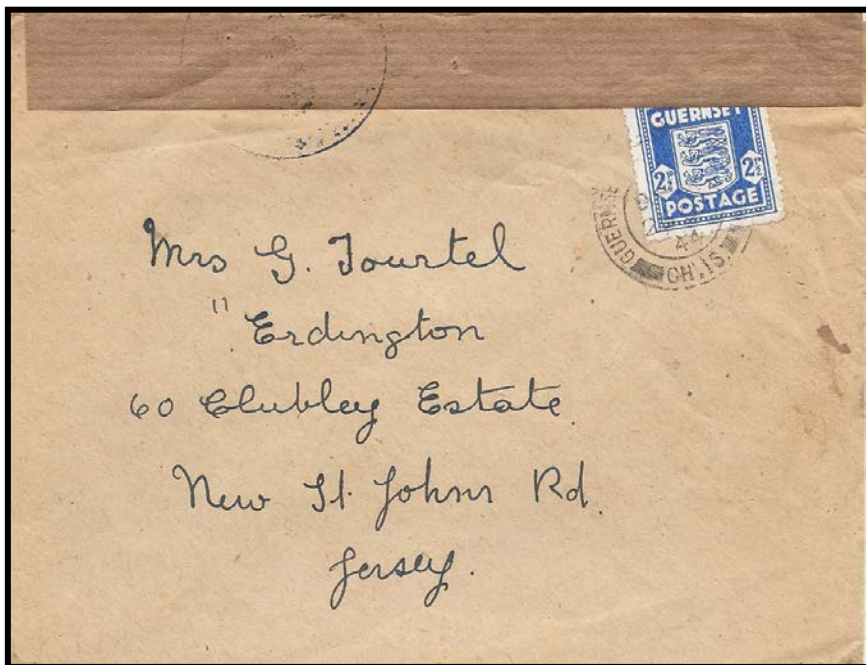 GUERNSEY
2½ 2½
POSTAGE
GUERNSE
44
CH. IS.
Mrs G. Tourtel
"Erdington
60 Clubley Estate.
New St. Johns Rd.
Jersey.